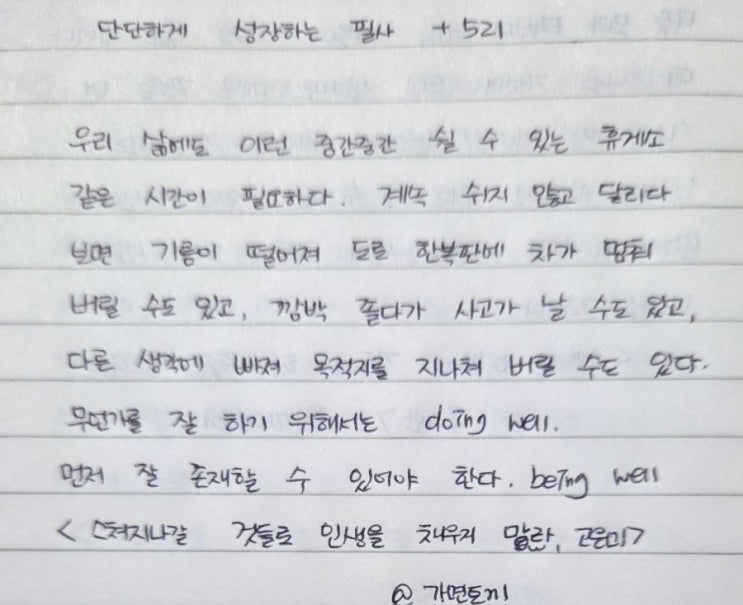 단단하게 성장하는 필사 +521
우리 삶에도 이런 중간중간 쉴 수 있는 휴게소
같은 시간이 필요하다. 계속 쉬지 않고 달리다
보면 기름이 떨어져 도로 한복판에 차가 멈춰
버릴 수도 있고, 깜박 졸다가 사고가 날 수도 있고,
다른 생각에 빠져 목적지를 지나쳐 버릴 수도 있다.
무언가를 잘 하기 위해서는 doing well.
먼저 잘 존재할 수 있어야 한다. being well
<스쳐지나갈 것들로 인생을 채우지 말란, 고은미>
@ 가면토끼